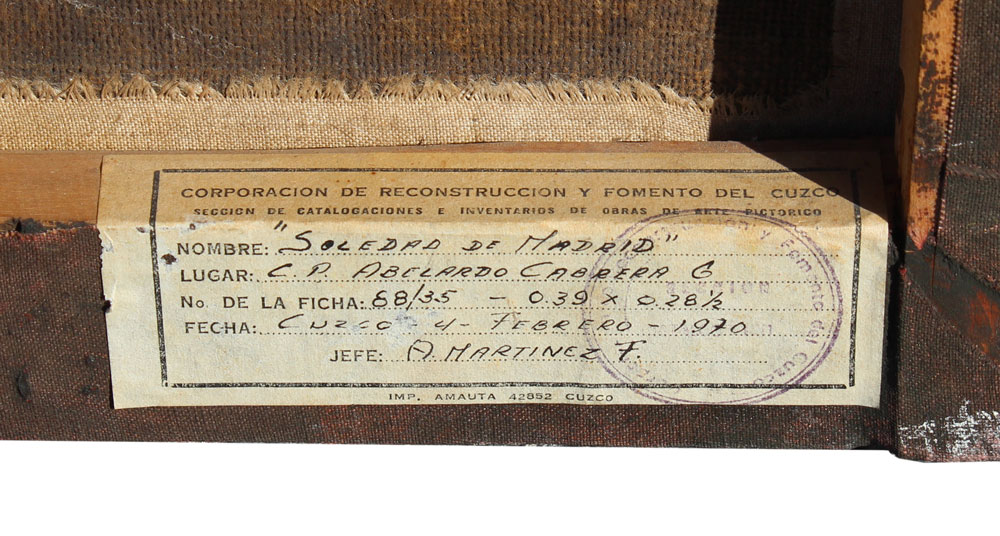 CORPORACION DE RECONSTRUCCION Y FOMENTO DEL CUZCO
SECCION DE CATALOGACIONES E INVENTARIOS DE OBRAS DE ARTE PICTORICO
NOMBRE: "SOLEDAD DE MADRID"
LUGAR: C.P. ABELARDO CABRERA G
No. DE LA FICHA: 68/35 - 0.39 x 0.28½
FECHA: CUZCO - 4 - FEBRERO - 1970
JEFE: A MARTINEZ F.
IMP. AMAUTA 42852 CUZCO
y Fomento del Cuzco
SECCION